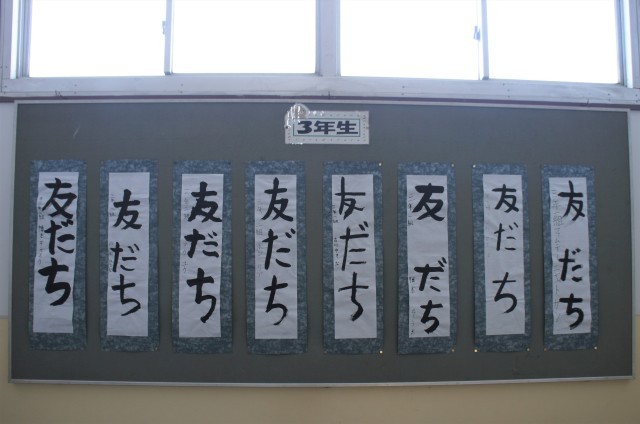 3年生
友だち
友だち
友だち
友だち
友だち
友だち
友だち
友だち